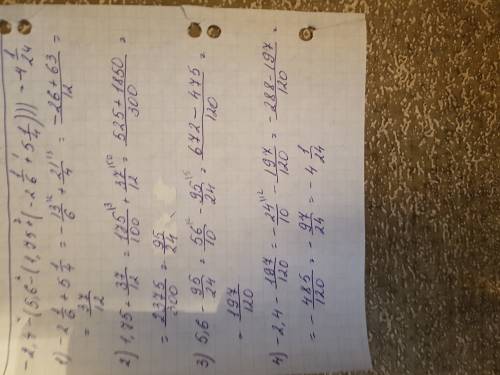 -2,4-(5,6-(1,75+(-2 1/6+5 1/4)))=-4 1/24
1) -2 1/6+5 1/4=-13/6+21/4=(-26+63)/12=
=37/12
2) 1,75+37/12=175/100+37/12=(525+1850)/300=
=2375/300=95/24
3) 5,6-95/24=56/10-95/24=(672-475)/120=
=197/120
4) -2,4-197/120=-24/10-197/120=(-288-197)/120=
=-485/120=-97/24=-4 1/24